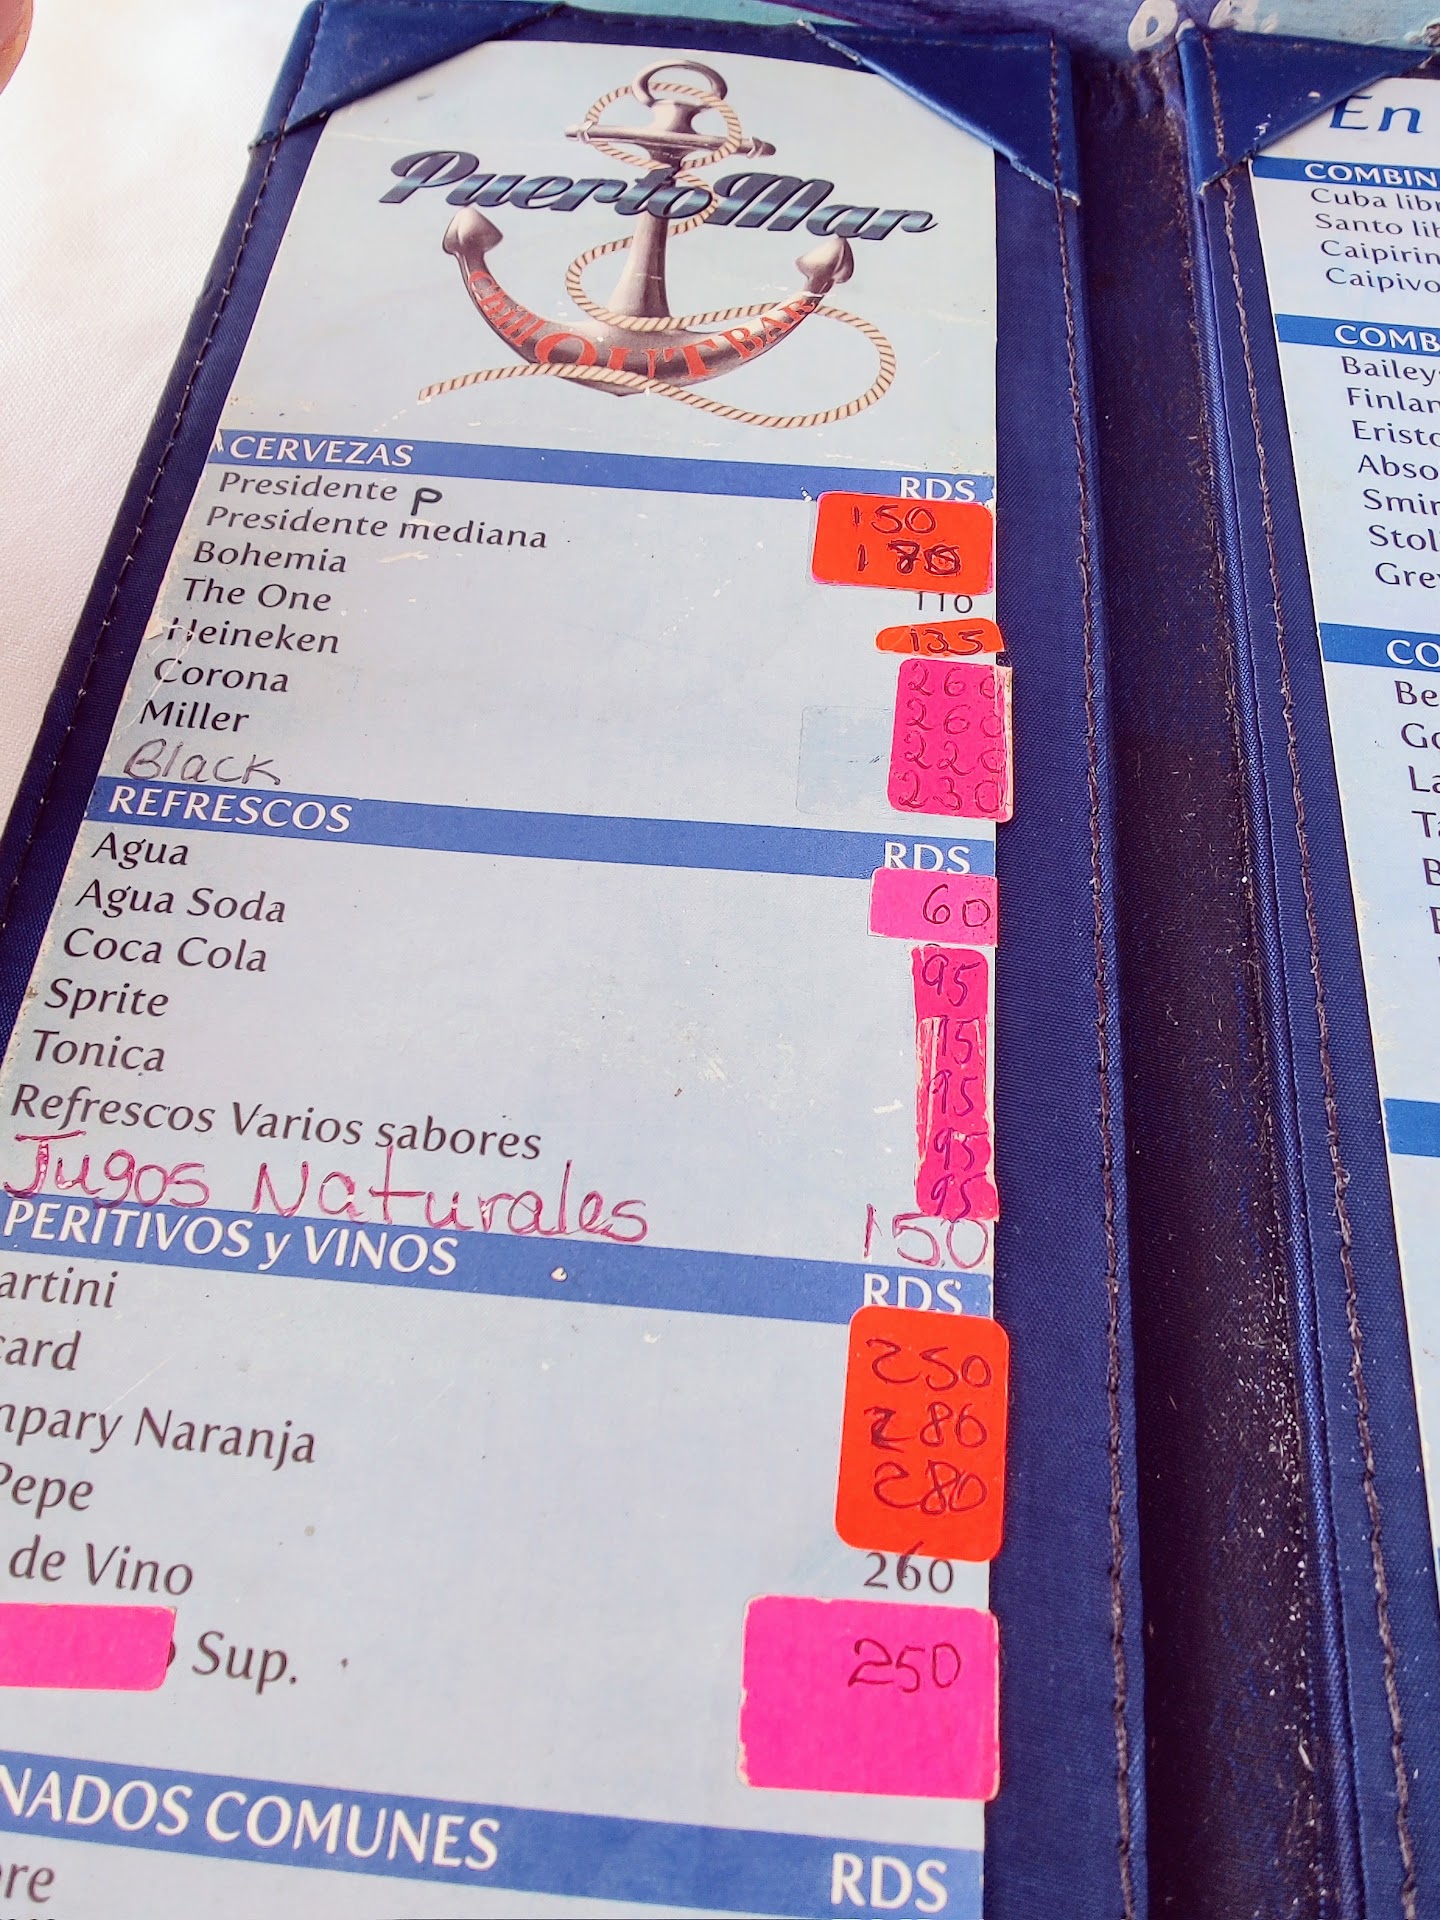 PuertoMar
Chill OUT BAR
CERVEZAS RDS
Presidente P 150
Presidente mediana 180
Bohemia 110
The One 135
Heineken 260
Corona 260
Miller 220
Black 230
REFRESCOS RDS
Agua 60
Agua Soda 95
Coca Cola 95
Sprite 95
Tonica 95
Refrescos Varios sabores 95
Jugos Naturales 150
PERITIVOS y VINOS RDS
artini 250
card 280
mpary Naranja 280
Pepe 260
de Vino 250
Sup.
NADOS COMUNES RDS
bre
En
COMBIN
Cuba libr
Santo lib
Caipirin
Caipivo
COMB
Bailey
Finlan
Eristo
Abso
Smir
Stol
Grey
CO
Be
Go
La
Ta
B